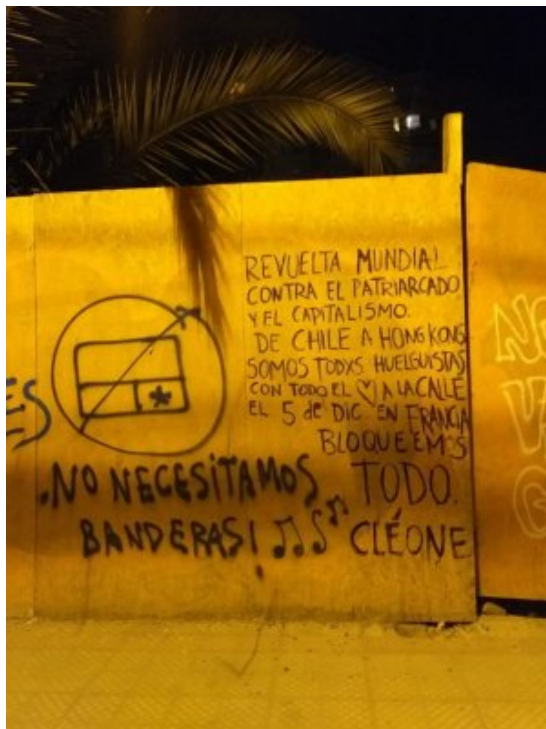 REVUELTA MUNDIAL
CONTRA EL PATRIARCADO
Y EL CAPITALISMO.
DE CHILE A HONG KONG
SOMOS TODXS HUELGUISTAS
CON TODO EL ♡ A LA CALLE
EL 5 de DIC EN FRANCIA
BLOQUEEMOS
TODO.
CLÉONE
.NO NECESITAMOS
BANDERAS! ♫♪♫
ES